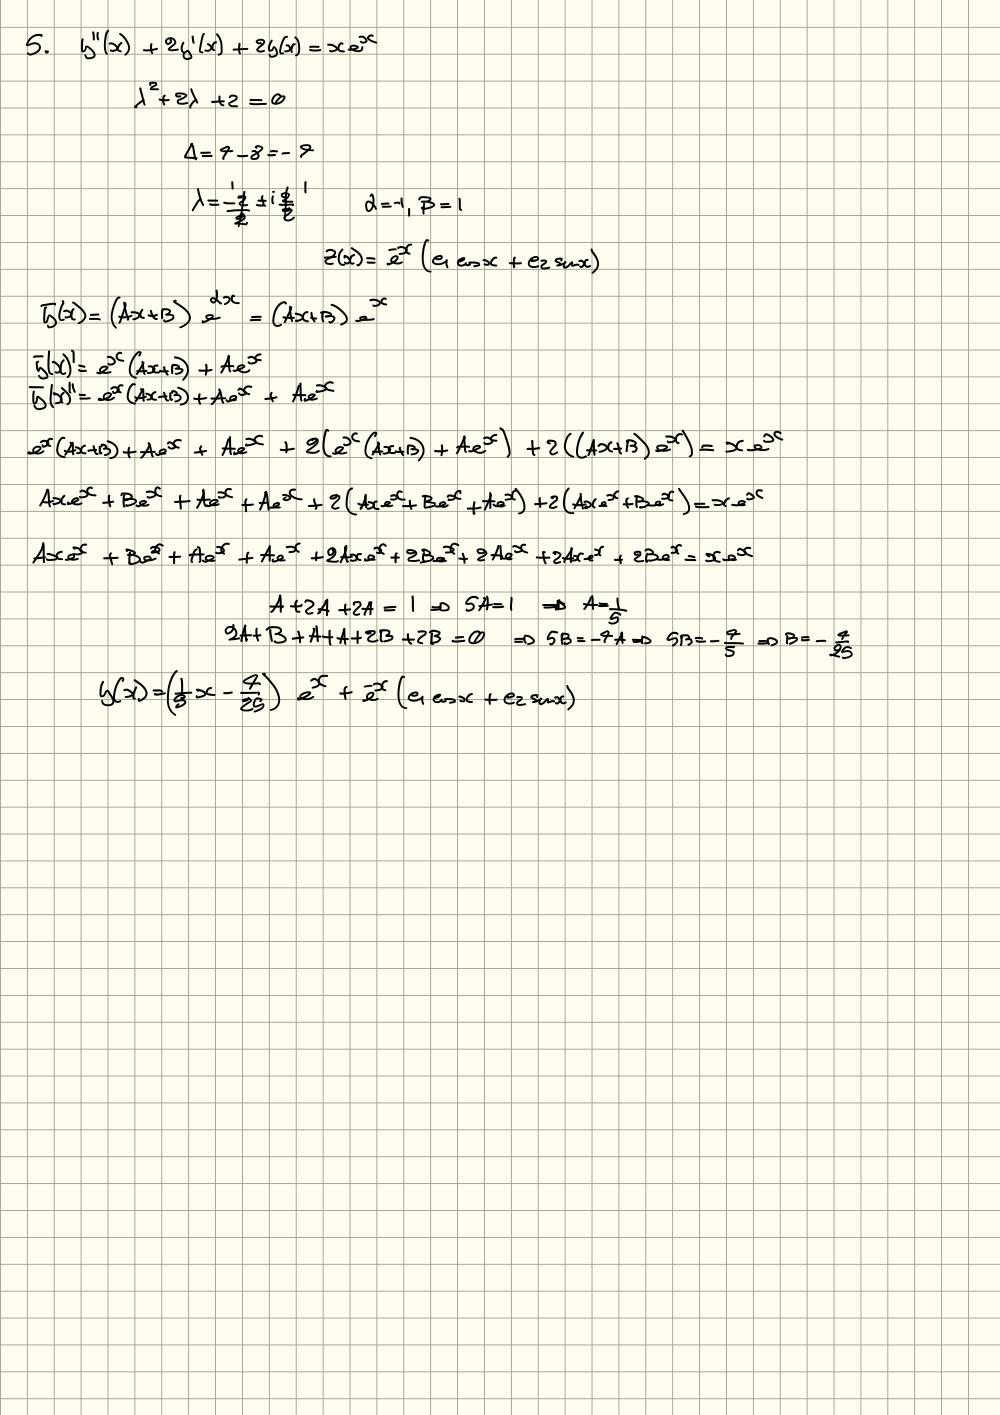 5. y''(x) + 2y'(x) + 2y(x) = xe^x
λ² + 2λ + 2 = 0
Δ = 4 - 8 = -4
λ = -2/2 ± i 2/2   α = -1, β = 1
z(x) = e^-x (c1 cosx + c2 sinx)
ȳ(x) = (Ax+B) e^αx = (Ax+B) e^x
ȳ(x)' = e^x (Ax+B) + Ae^x
ȳ(x)'' = e^x (Ax+B) + Ae^x + Ae^x
e^x (Ax+B) + Ae^x + Ae^x + 2(e^x (Ax+B) + Ae^x) + 2((Ax+B) e^x) = xe^x
Axe^x + Be^x + Ae^x + Ae^x + 2(Axe^x + Be^x + Ae^x) + 2(Axe^x + Be^x) = xe^x
Axe^x + Be^x + Ae^x + Ae^x + 2Axe^x + 2Be^x + 2Ae^x + 2Axe^x + 2Be^x = xe^x
A + 2A + 2A = 1 ⇒ 5A = 1 ⇒ A = 1/5
2A + B + A + A + 2B + 2B = 0 ⇒ 5B = -4A ⇒ 5B = -4/5 ⇒ B = -4/25
y(x) = (1/5 x - 4/25) e^x + e^-x (c1 cosx + c2 sinx)